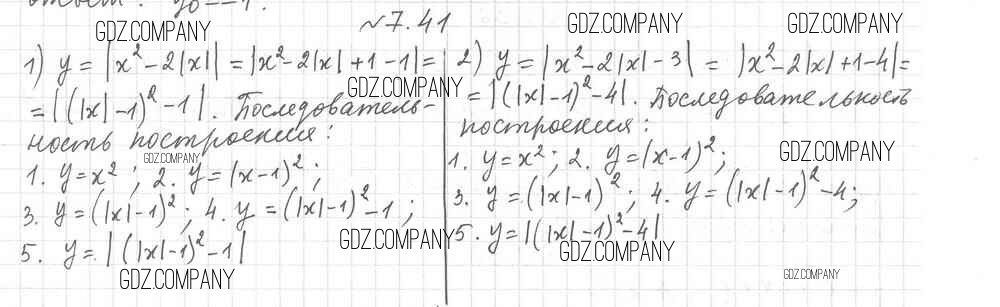 №7.41
1) y = |x²-2|x|| = |x²-2|x|+1-1| =
= |(|x|-1)²-1|. Последователь-
ность построения:
1. y=x²; 2. y=(x-1)²;
3. y=(|x|-1)²; 4. y=(|x|-1)²-1;
5. y=|(|x|-1)²-1|
2) y = |x²-2|x|-3| = |x²-2|x|+1-4| =
= |(|x|-1)²-4|. Последовательность
построения:
1. y=x²; 2. y=(x-1)²;
3. y=(|x|-1)²; 4. y=(|x|-1)²-4;
5. y=|(|x|-1)²-4|
GDZ.COMPANY
GDZ.COMPANY
GDZ.COMPANY
GDZ.COMPANY
GDZ.COMPANY
GDZ.COMPANY
GDZ.COMPANY
GDZ.COMPANY
GDZ.COMPANY
GDZ.COMPANY